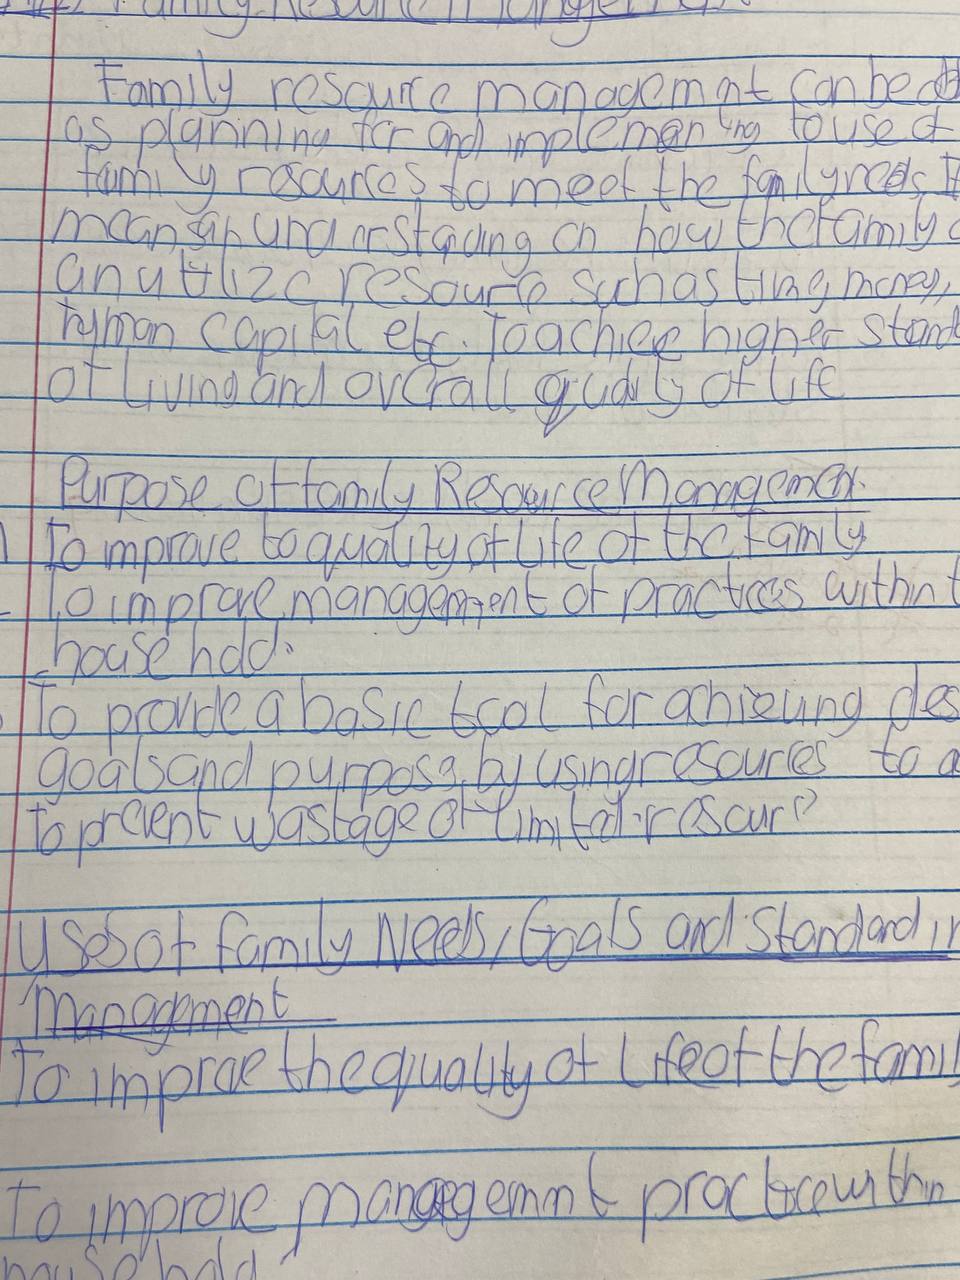 Family Resource Management
Family resource management can be
as planning for and implementing to use of
family resources to meet the family needs It
means an understanding on how the family
an utilize resource such as time, money,
human capital etc. To achiee higher stand
of living and overall quality of life
Purpose of family Resource Management.
To improve to quality of life of the family
To improve management of practices within t
house hold.
To provide a basic tool for achieving des
goals and purpose, by using resources to a
To prevent wastage of limited resource
Uses of family Needs, Goals and Standard in
Management
To improve the quality of life of the famil
To improve management practice within
house hold